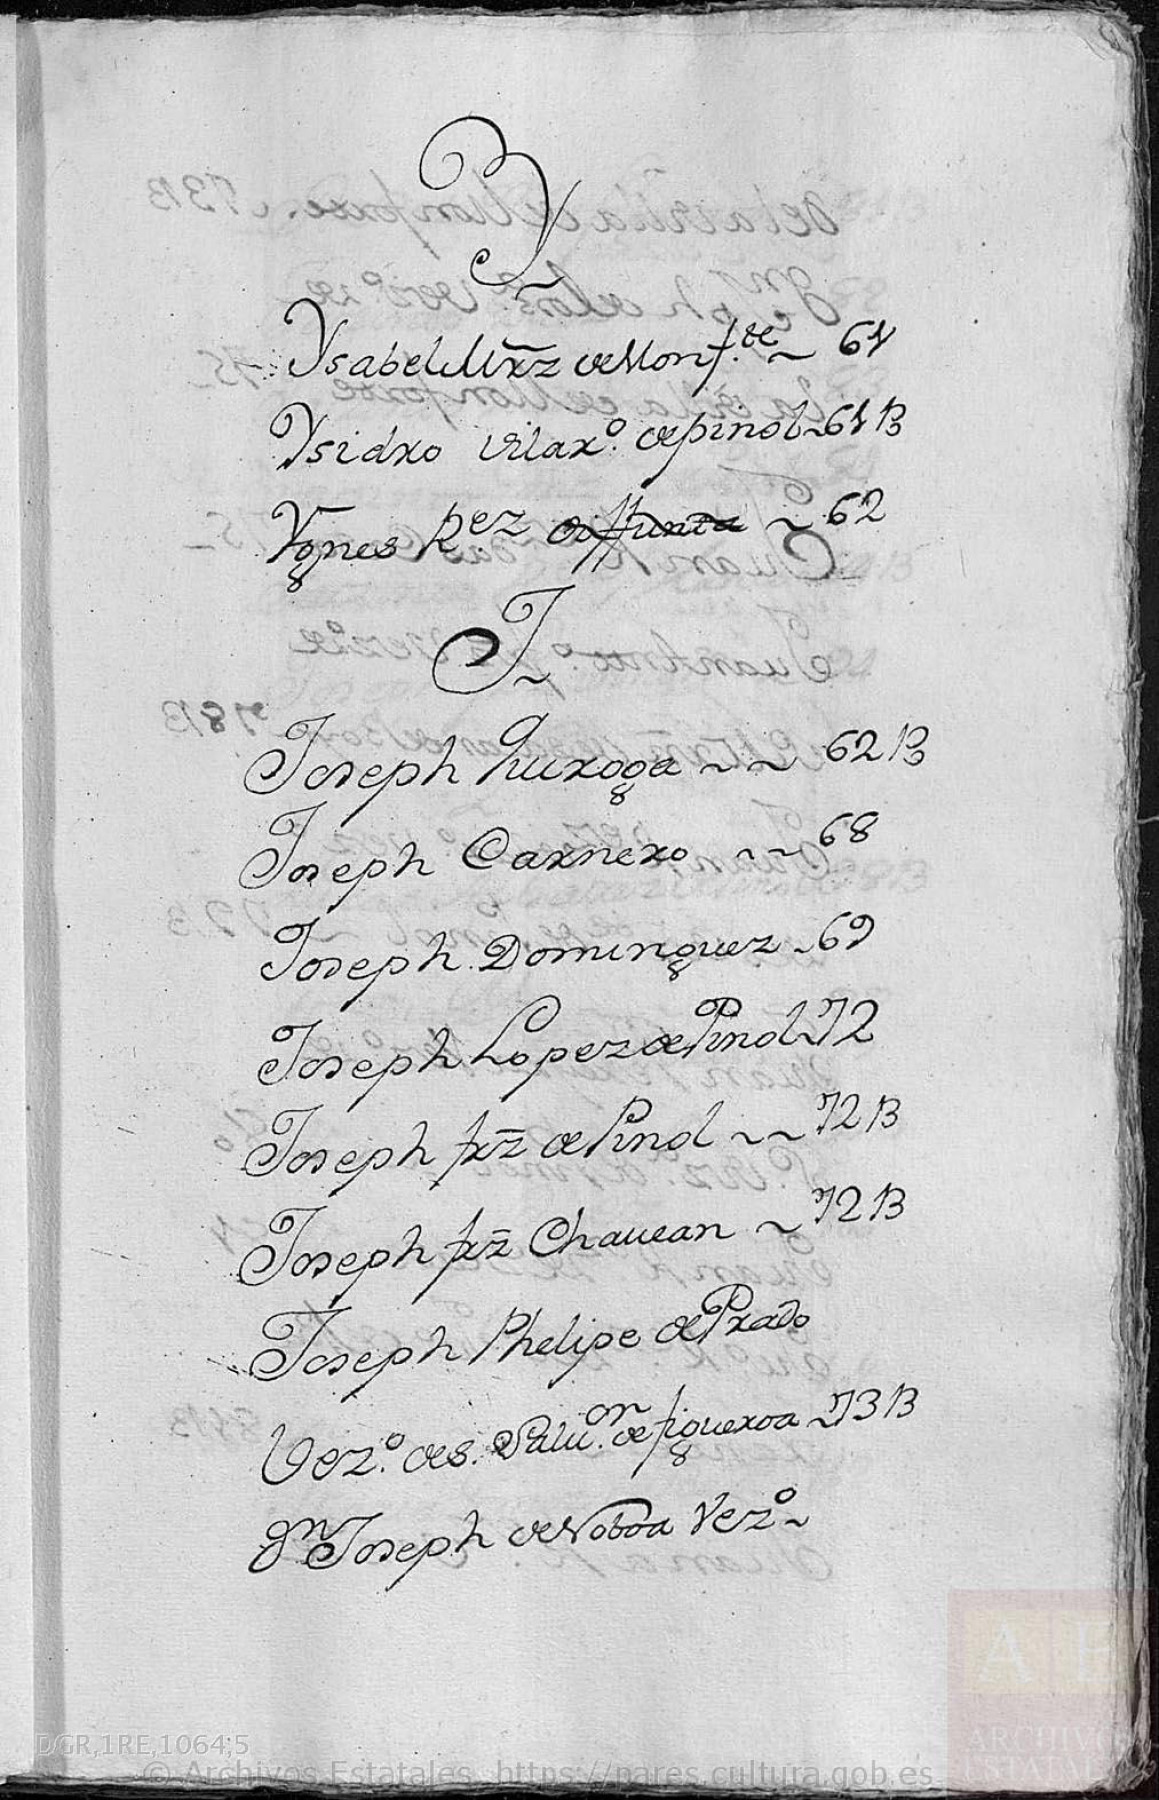 Y
Ysabel Mrz̄ de Monf.te ~ 61
Ysidro Vilar.o de pinol ~ 61 B
Ygnes R.ez diffunta ~ 62
J
Joseph quiroga ~ ~ 62 B
Joseph Carnero ~ ~ 68
Joseph Dominguez ~ 69
Joseph Lopez de Pinol 72
Joseph frz̄ de Pinol ~ ~ 72 B
Joseph frz̄ Chauean ~ 72 B
Joseph Phelipe de Prado
Vez.o de S. Salu.on de figueroa ~ 73 B
Joseph de Noboa Vez.o ~
DGR,1RE,1064,5
© Archivos Estatales, https://pares.cultura.gob.es
AE
ARCHIVOS
ESTATALES